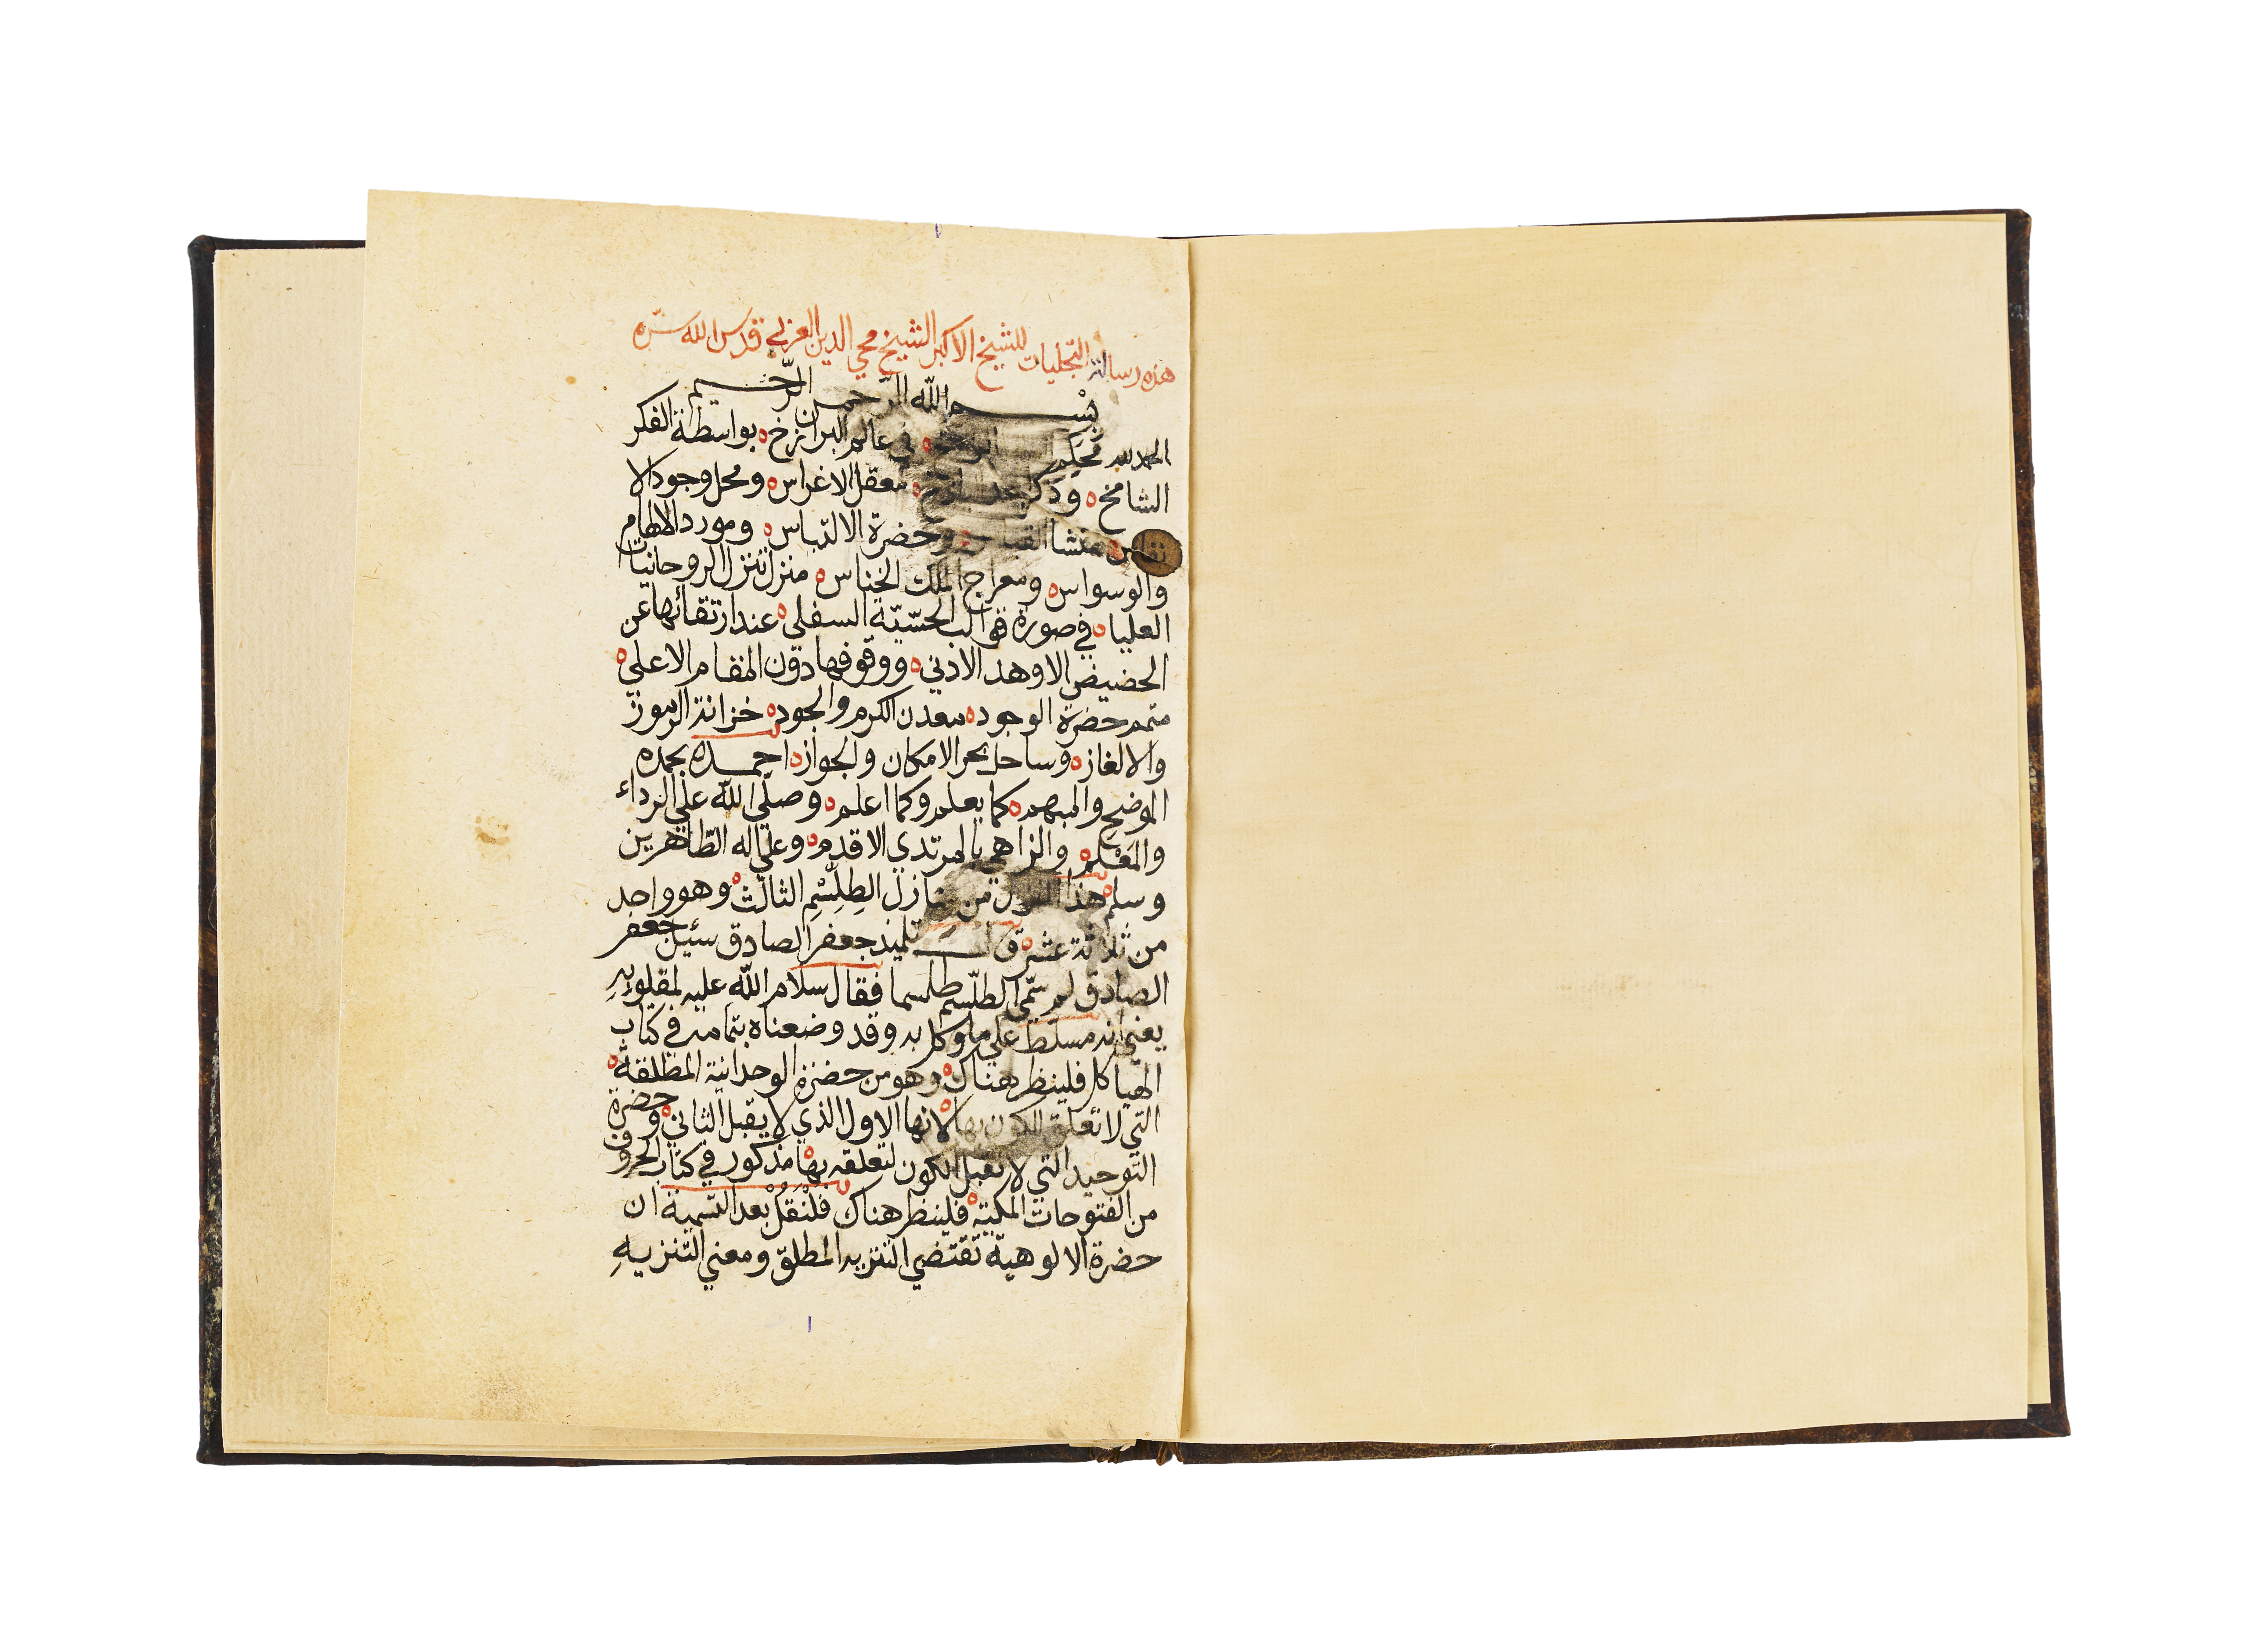 هذه رسالة التجليات للشيخ الاكبر الشيخ محي الدين العربي قدس الله سره
بسم الله الرحمن الرحيم
الحمد لله محكم في عالم البرازخ بواسطة الفكر
الشامخ وذكر معقل الاغراس ومحل وجود الا
نفاس منشا وحضرة الالتباس ومورد الالهام
والوسواس ومعراج الملك الخناس منزل تنزل الروحانيات
العليا في صورة قوالب الحسّيّة السفلي عند ارتقائها عن
الحضيض الاوهد الادني ووقوفها دون المقام الاعلي
متمم حضرة الوجود معدن الكرم والجود خزانة الرموز
والالغاز وساحل بحر الامكان والجواز احمده بحمده
الموضح والمبهم كما يعلم وكما اعلم وصلّي اللّه علي الرداء
والمَعْلم والزاهي بالمرتدي الاقدم وعلي اله الطّاهرين
وسلم هذا من منازل الطِلِّسْمِ الثالث وهو واحد
من ثلاثة عشر قال تلميذ جعفر الصادق سئيل جعفر
الصادق لم سمّي الطلّسم طلسما فقال سلام اللّه عليه لمقلوبِهِ
يعني انه مسلط علي ما وكل به وقد وضعناه بتمامه في كتاب
الهيا كل فلينظر هناك وهو من حضرة الوحدانية المطلقة
التي لا تعلق للكون بها لانها الاول الذي لا يقبل الثاني وحضرة
التوحيد التي لا تقبل الكون لتعلقه بها مذكور في كتاب الحروف
من الفتوحات المكية فلينظر هناك فلْنَقُلْ بعد التسمية ان
حضرة الالوهيّة تقتضي التنزيه المطلق ومعني التّنزيهِ
١